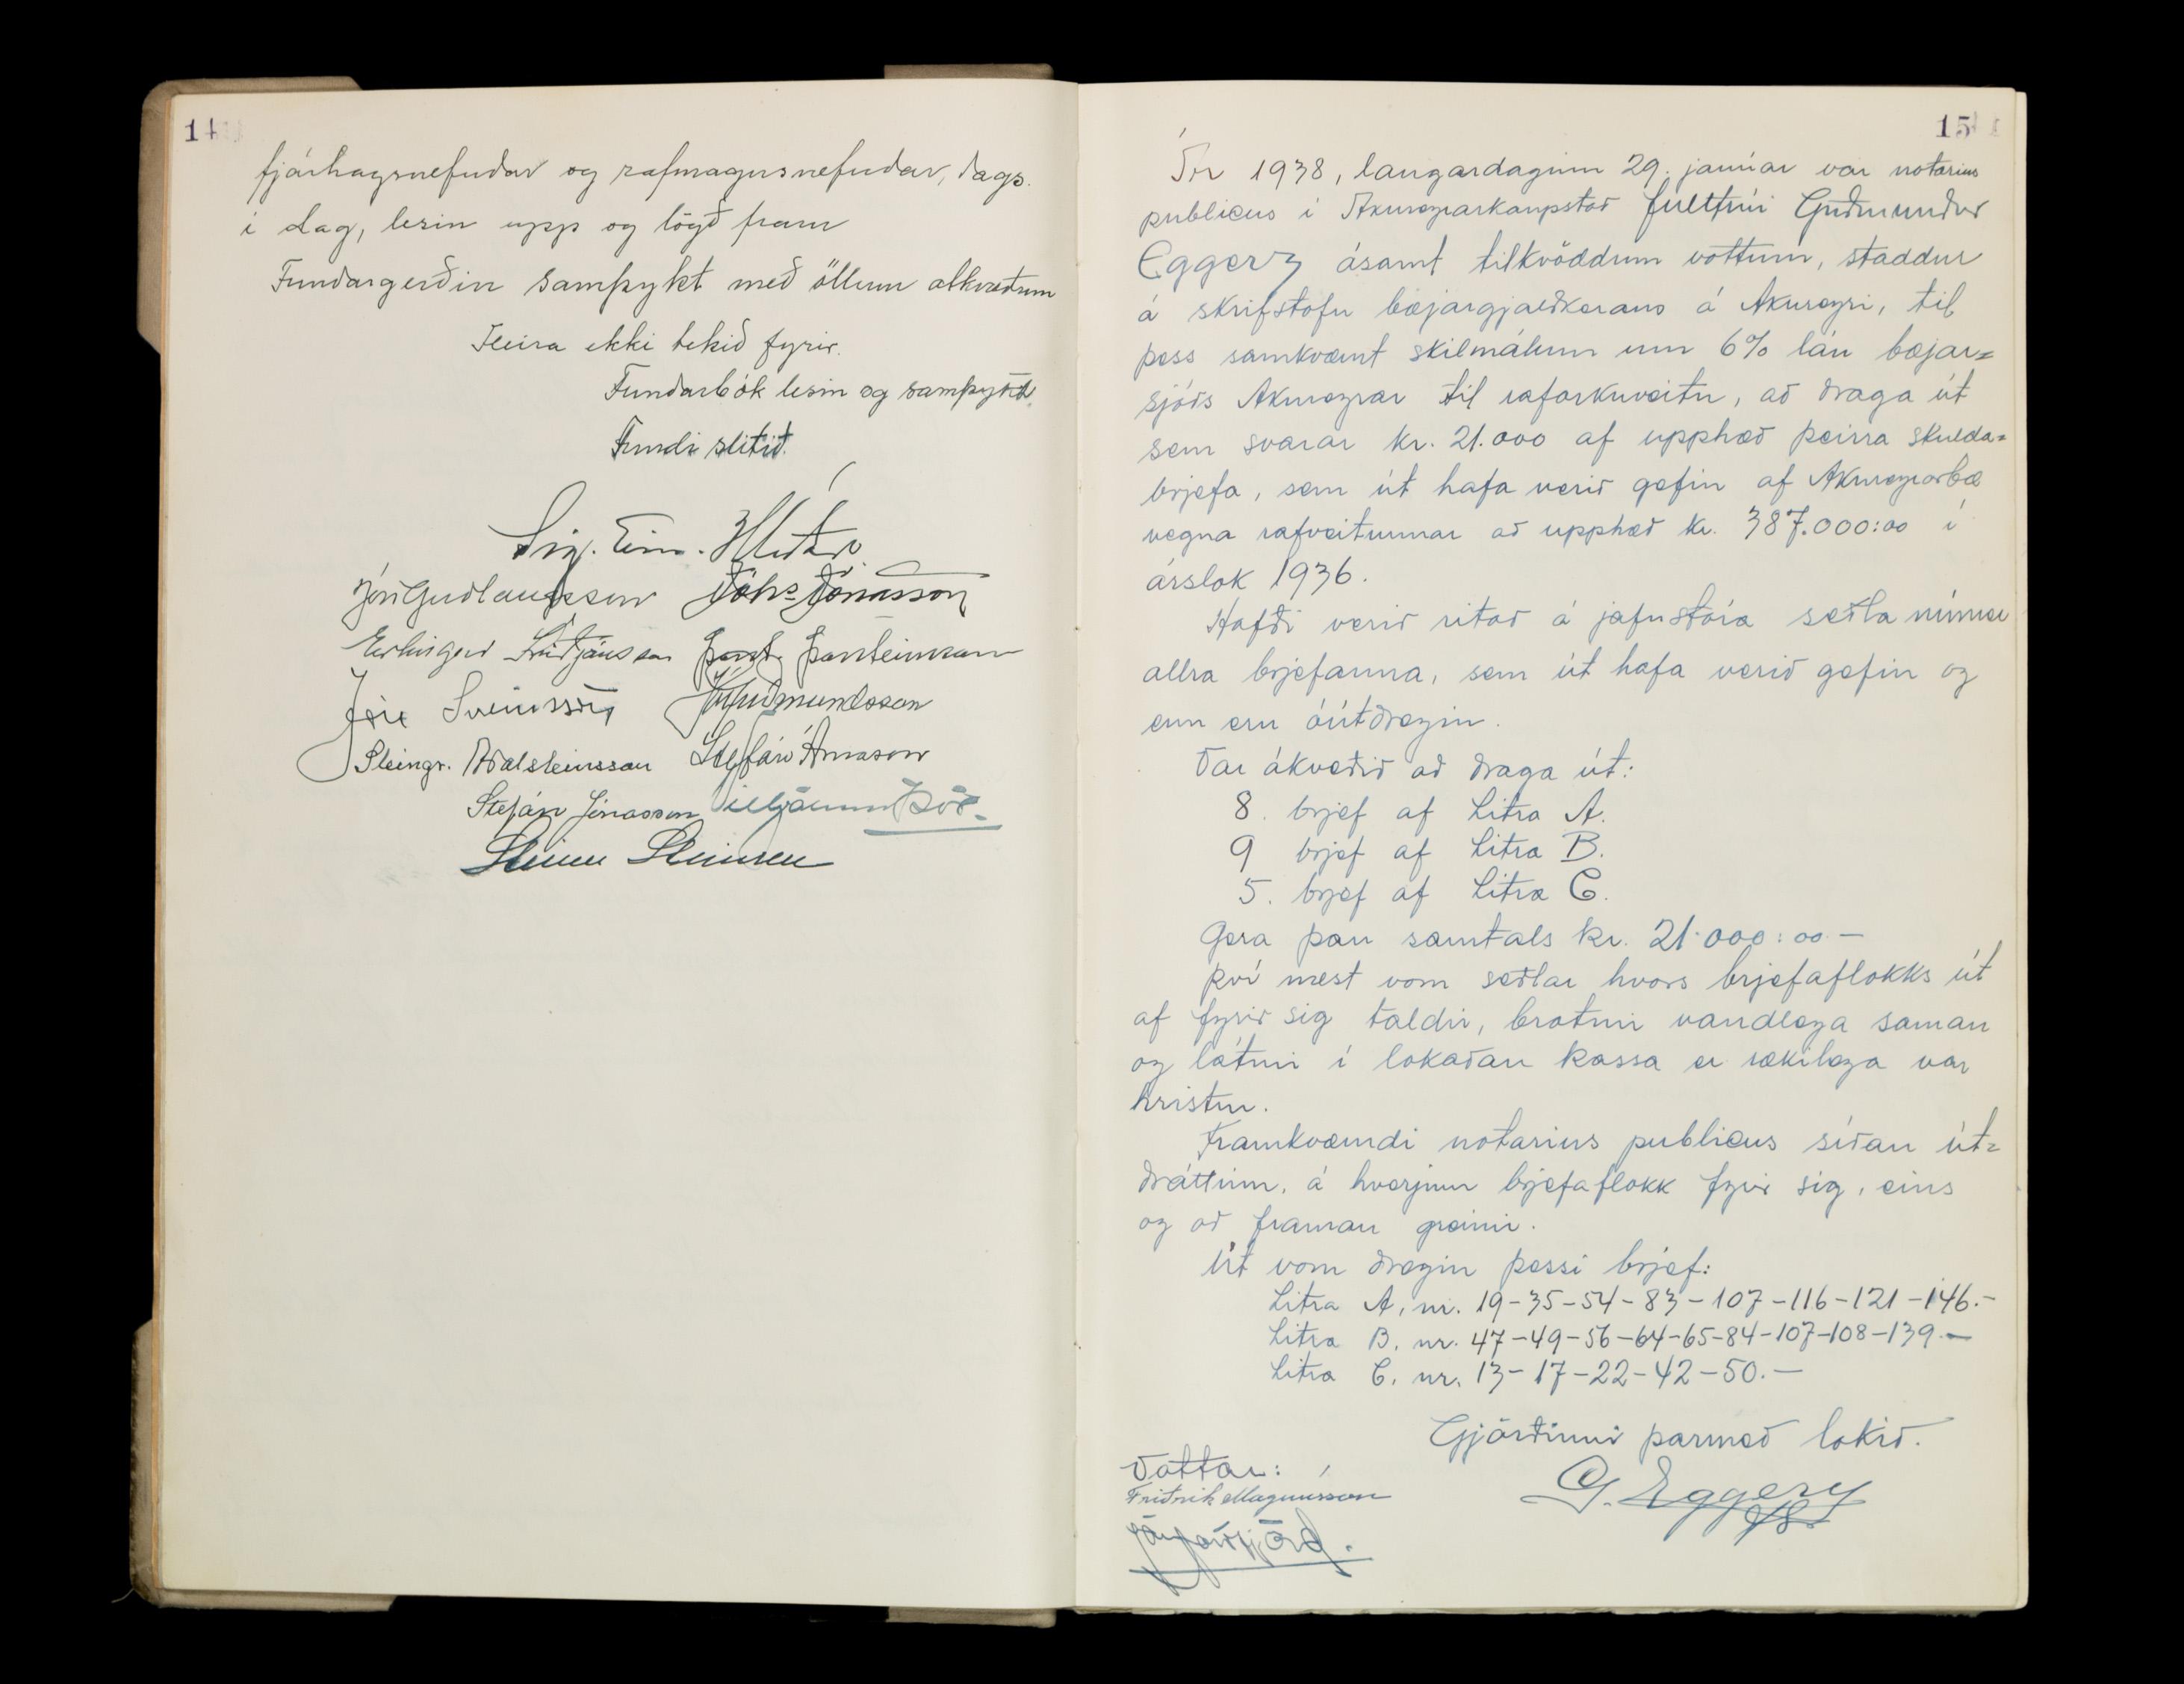 14
fjárhagsnefndar og rafmagnsnefndar, dags.
í dag, lesin upp og lögð fram
Fundargerðin samþykt með öllum atkvæðum
Fleira ekki tekið fyrir.
Fundarbók lesin og samþykt.
Fundi slitið.
Sig. Ein. Hlíðar
Jón Guðlaugsson Jóhs Jónasson
Erlingur Friðjónsson Þorst. Þorsteinsson
Jón Sveinsson J Guðmundsson
Steingr. Aðalsteinsson Stefán Árnason
Stefán Jónasson Vilhjálmur Þór
Steinn Steinsen
15
Ár 1938, laugardaginn 29. janúar var notarius
publicus í Akureyrarkaupstað fulltrúi Guðmundur
Eggerz ásamt tilkvöddum vottum, staddur
á skrifstofu bæjargjaldkerans á Akureyri, til
þess samkvæmt skilmálum um 6% lán bæjar=
sjóðs Akureyrar til raforkuveitu, að draga út
sem svarar kr. 21.000 af upphæð þeirra skulda=
brjefa, sem út hafa verið gefin af Akureyrarbæ
vegna rafveitunnar að upphæð kr. 387.000:00 í
árslok 1936.
Hafði verið ritað á jafnstóra seðla númer
allra brjefanna, sem út hafa verið gefin og
enn eru óútdregin.
Var ákveðið að draga út:
8. brjef af Litra A.
9 brjef af Litra B.
5. brjef af Litra C.
Gera þau samtals kr. 21.000:00.—
Því næst voru seðlar hvors brjefaflokks út
af fyrir sig taldir, brotnir vandlega saman
og látnir í lokaðan kassa er rækilega var
hristur.
Framkvæmdi notarius publicus síðan út=
dráttinn, á hverjum brjefaflokk fyrir sig, eins
og að framan greinir.
Út voru dregin þessi brjef:
Litra A, nr. 19-35-54-83-107-116-121-146.-
Litra B. nr. 47-49-56-64-65-84-107-108-139.—
Litra C. nr. 13-17-22-42-50.—
Gjörðinni þarmeð lokið.
G. Eggerz
Vottar:
Friðrik Magnússon